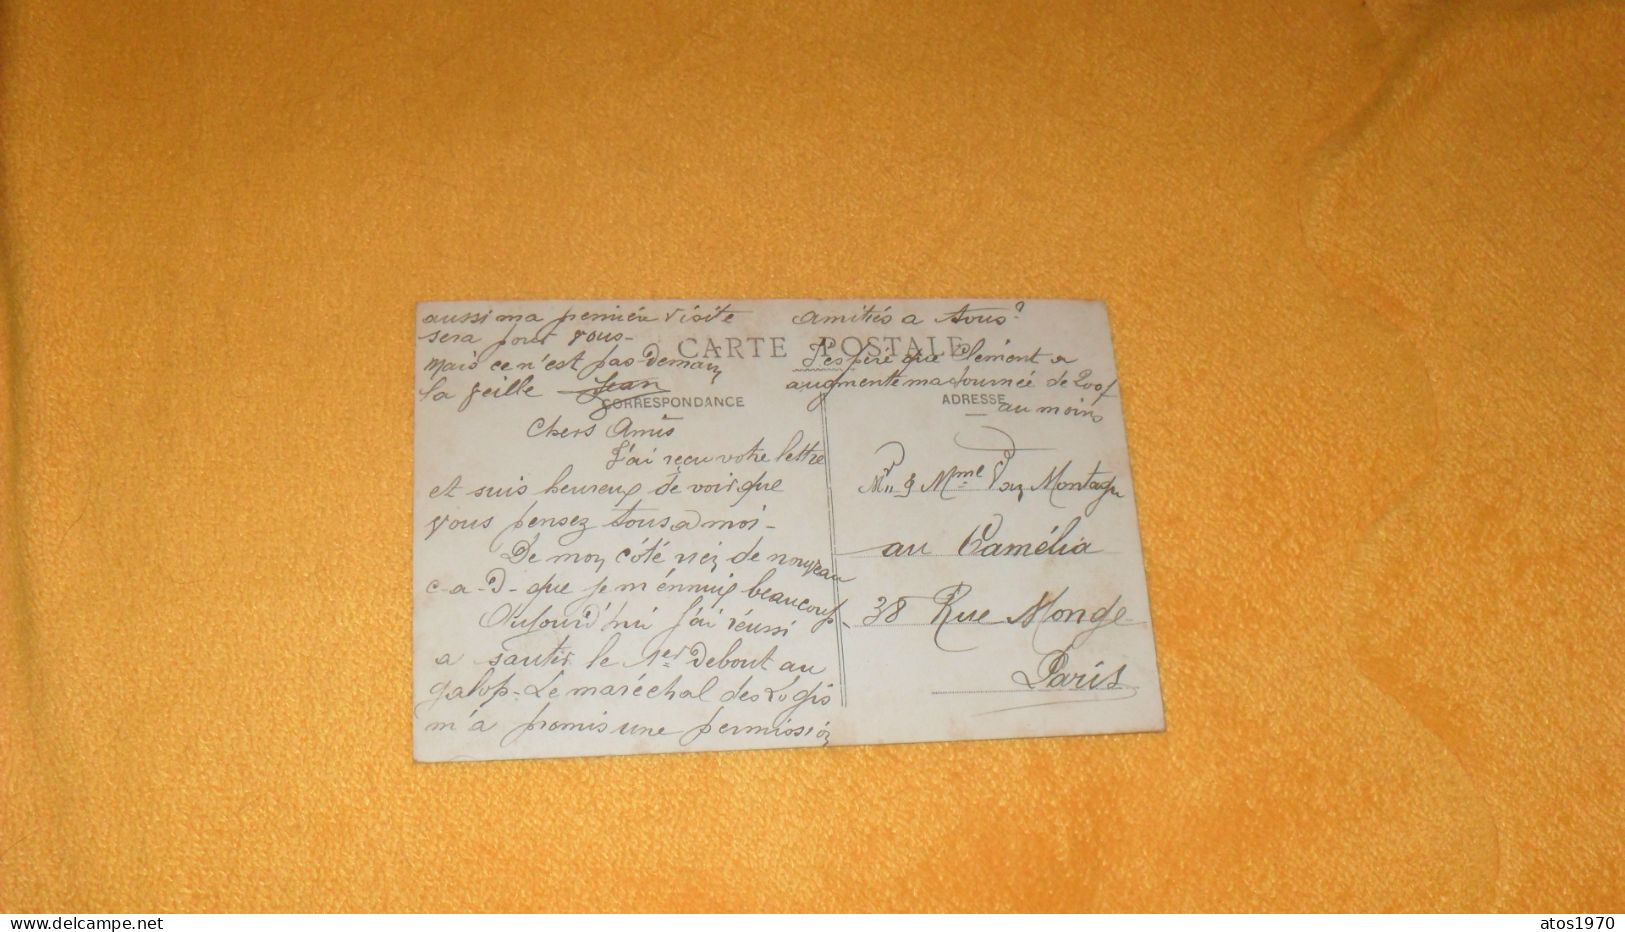 aussi ma première visite
sera pour vous-
Mais ce n'est pas Demain
la veille Jean
Amitiés a tous
CARTE POSTALE
J'espère que Clément a
augmenté ma tournée de 200f
au moins
CORRESPONDANCE
ADRESSE
Chers Amis
J'ai reçu votre lettre
et suis heureux de voir que
vous pensez tous a moi-
De mon côté rien de nouveau
c-a-D- que je m'ennuie beaucoup-
Aujourd'hui j'ai réussi
a sauter le 1er Debout au
galop- Le maréchal des Logis
m'a promis une permission
Mr & Mme Montagu
au Camélia
38 Rue Monge
Paris
atos1970